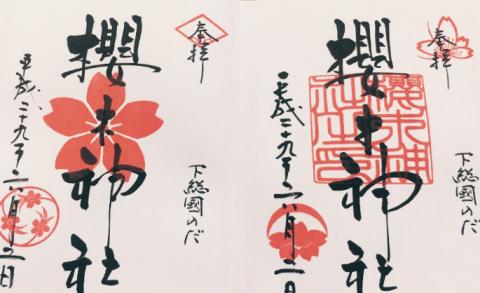 奉拝
下総國のだ
櫻木神社
平成二十九年六月二日
奉拝
下総國のだ
櫻木神社
平成二十九年六月二日